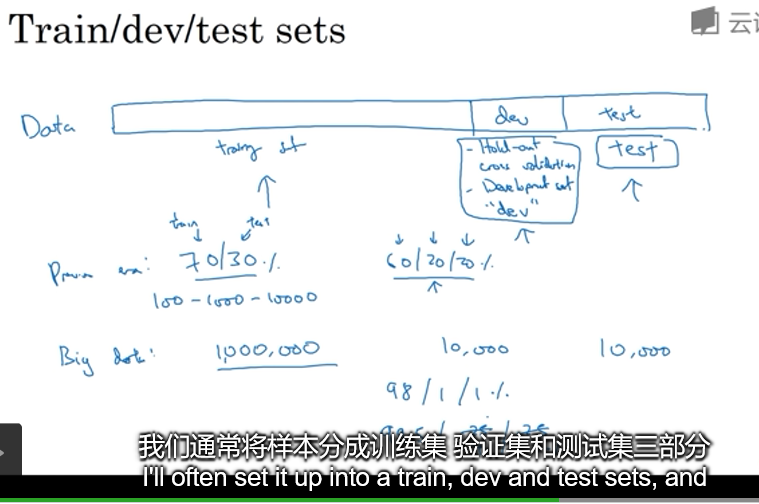 Train/dev/test sets
云
Data
dev
test
training set
- Hold-out
cross validation
- Development set
"dev"
test
train
test
Previous era:
70/30%
60/20/20%
100-1000-10000
Big data:
1,000,000
10,000
10,000
98/1/1%
我们通常将样本分成训练集 验证集和测试集三部分
I'll often set it up into a train, dev and test sets, and